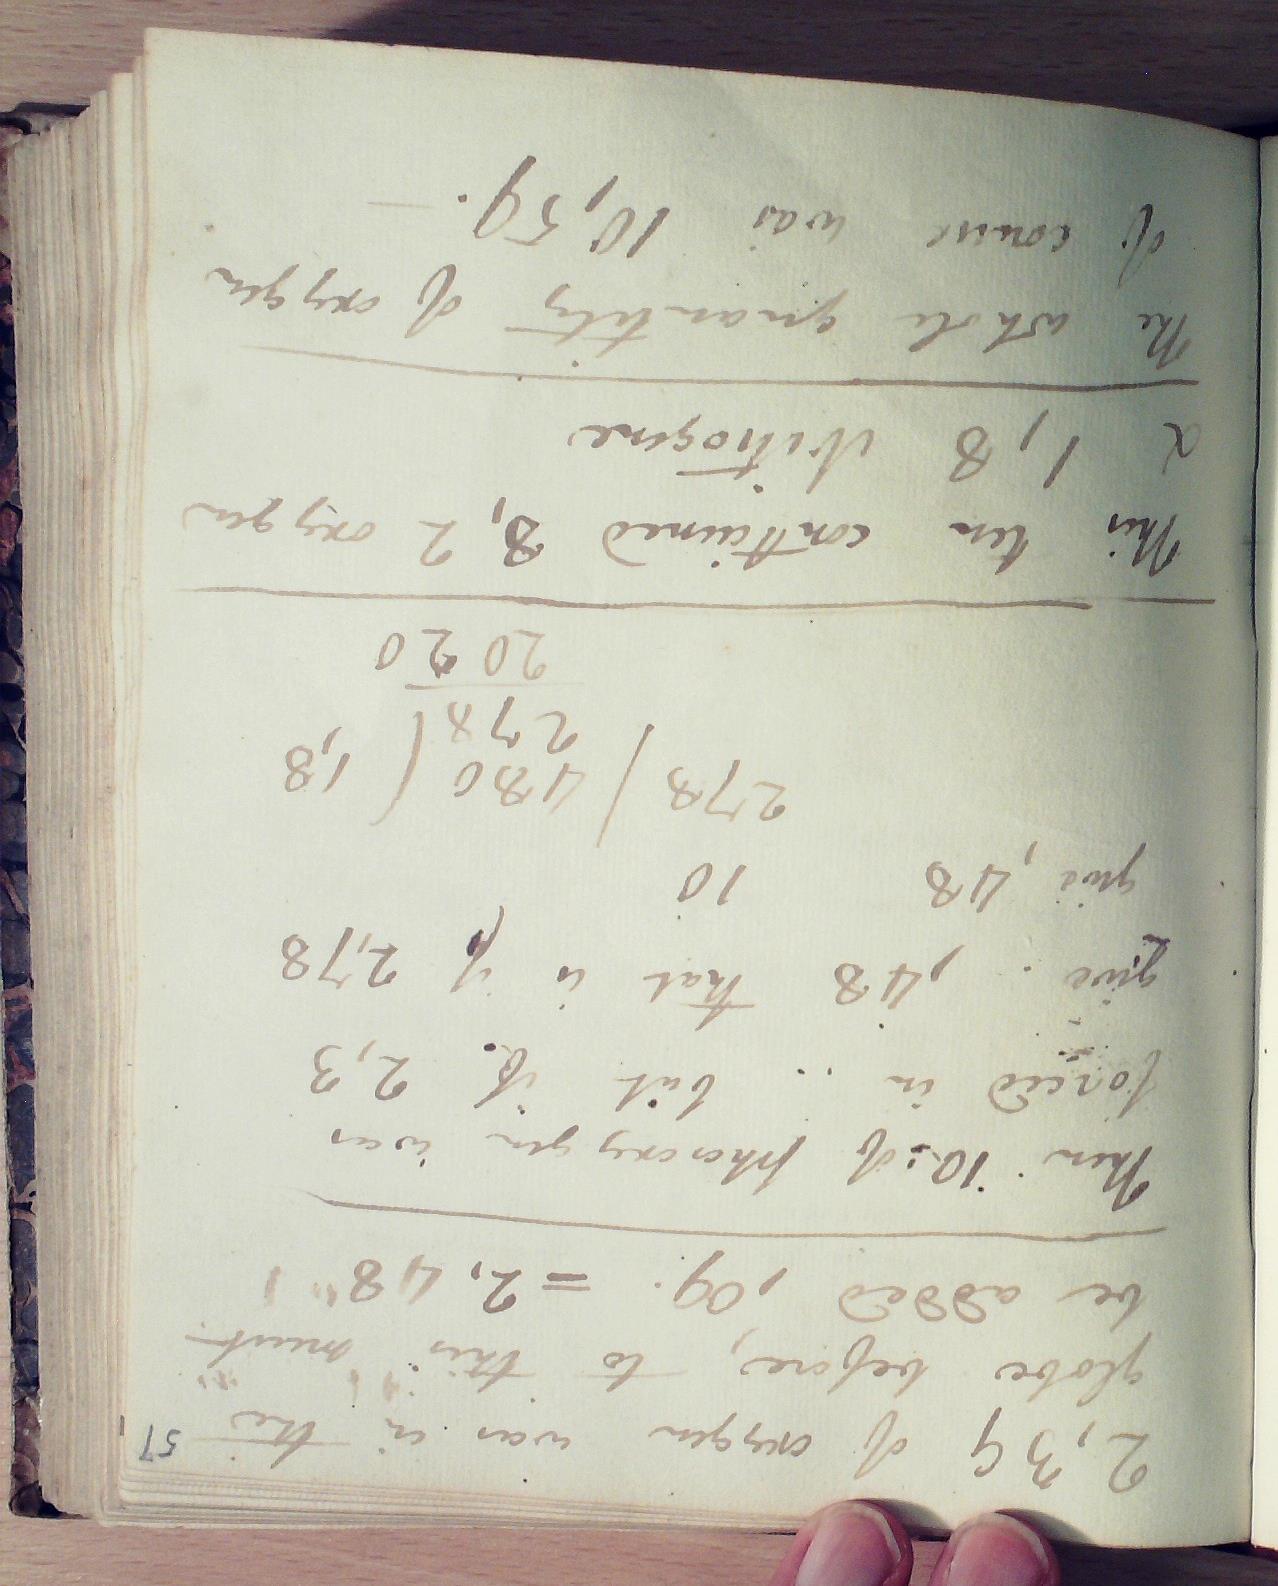 57
2,39 of oxygen was in the
globe before, to this must
be added ,09. = 2,48
Then 10 of phosoxygen was
forced in but if 2,3
give ,48 that is if 2,78
give ,48 10
278 / 480 ( 1,8
278
2020
This ten contained 8,2 oxygen
& 1,8 Nitrogene
The whole quantity of oxygen
of course was 10,59. —